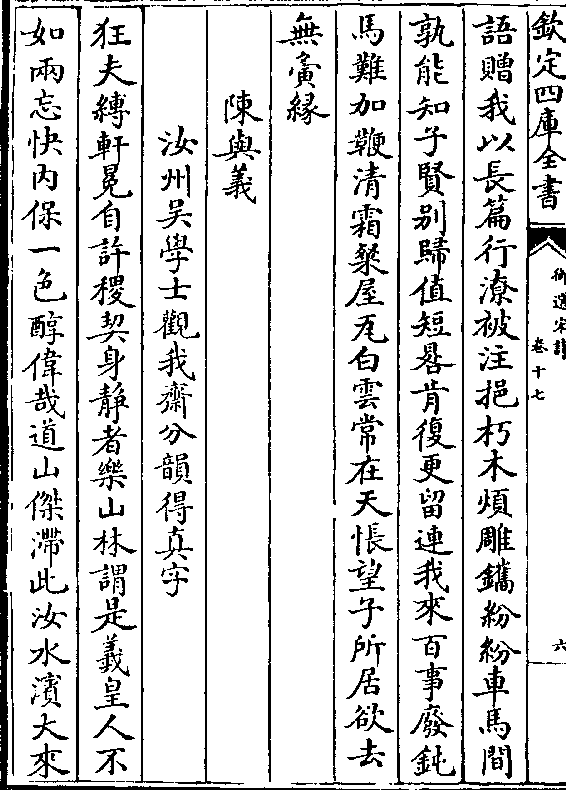 欽定四庫全書
御選宋詩
卷十七
六
語贈我以長篇行潦被注挹朽木煩雕鐫紛紛車馬間
孰能知子賢别歸值短晷肯復更留連我來百事廢鈍
馬難加鞭清霜粲屋瓦白雲常在天悵望子所居欲去
無夤縁
陳與義
汝州吴學士觀我齋分韻得真字
狂夫縛軒冕自許稷契身静者樂山林謂是羲皇人不
如兩忘快内保一色醇偉哉道山傑滯此汝水濱大來